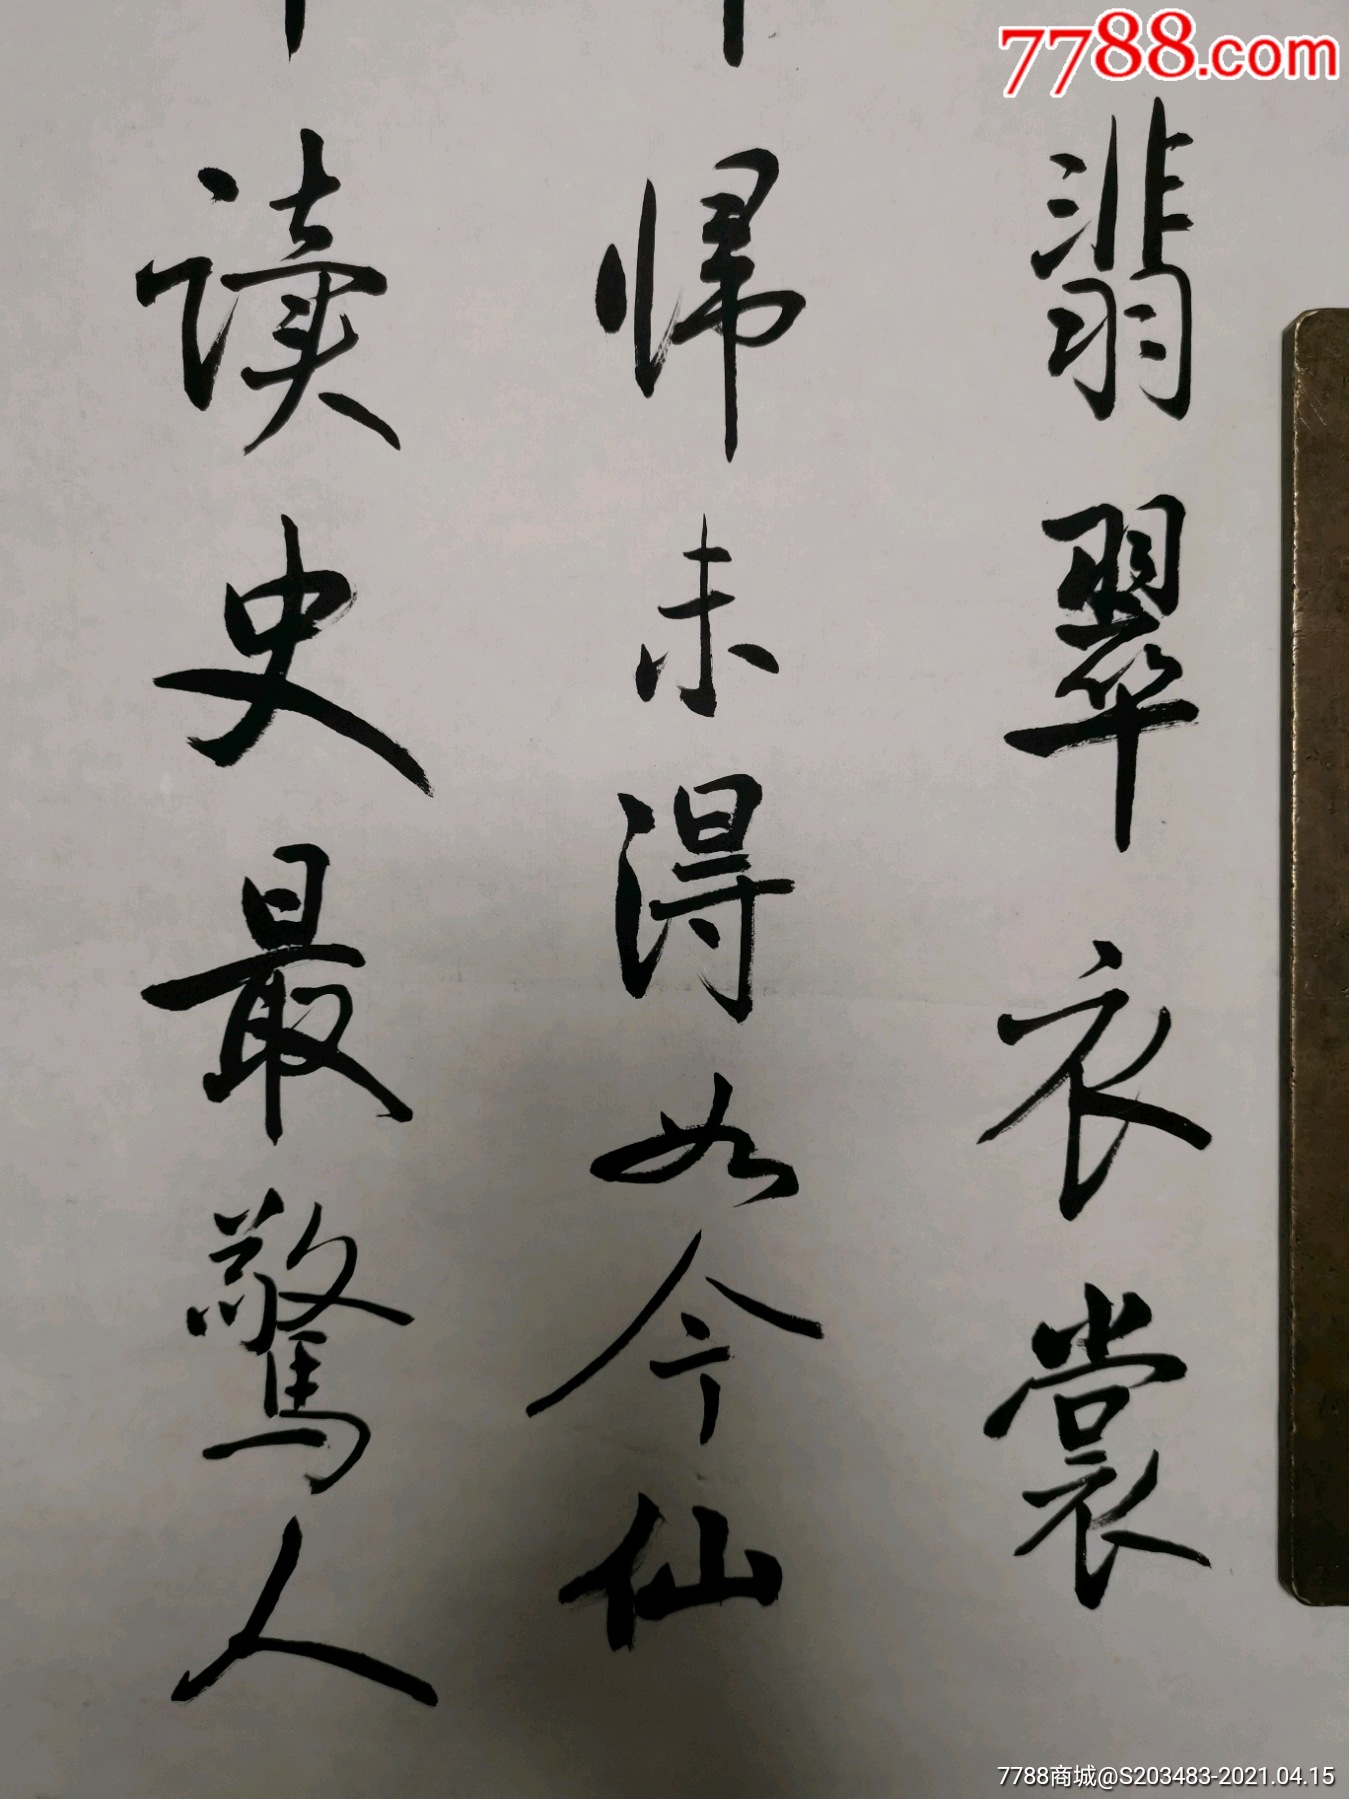 7788.com
翡翠衣裳
帰未得如今仙
读史最驚人
7788商城@S203483-2021.04.15